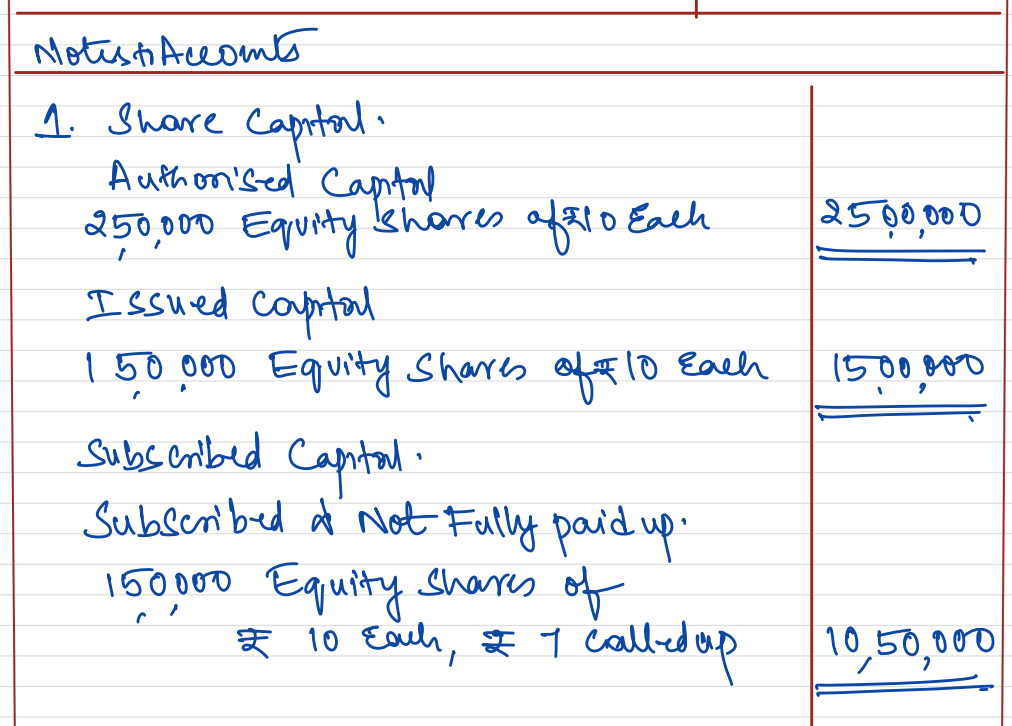 Notes to Accounts
1. Share Capital.
Authorised Capital
2,50,000 Equity shares of ₹10 Each 25,00,000
Issued Capital
1,50,000 Equity Shares of ₹10 Each 15,00,000
Subscribed Capital.
Subscribed & Not Fully paid up.
1,50,000 Equity Shares of
₹ 10 Each, ₹ 7 called up 10,50,000